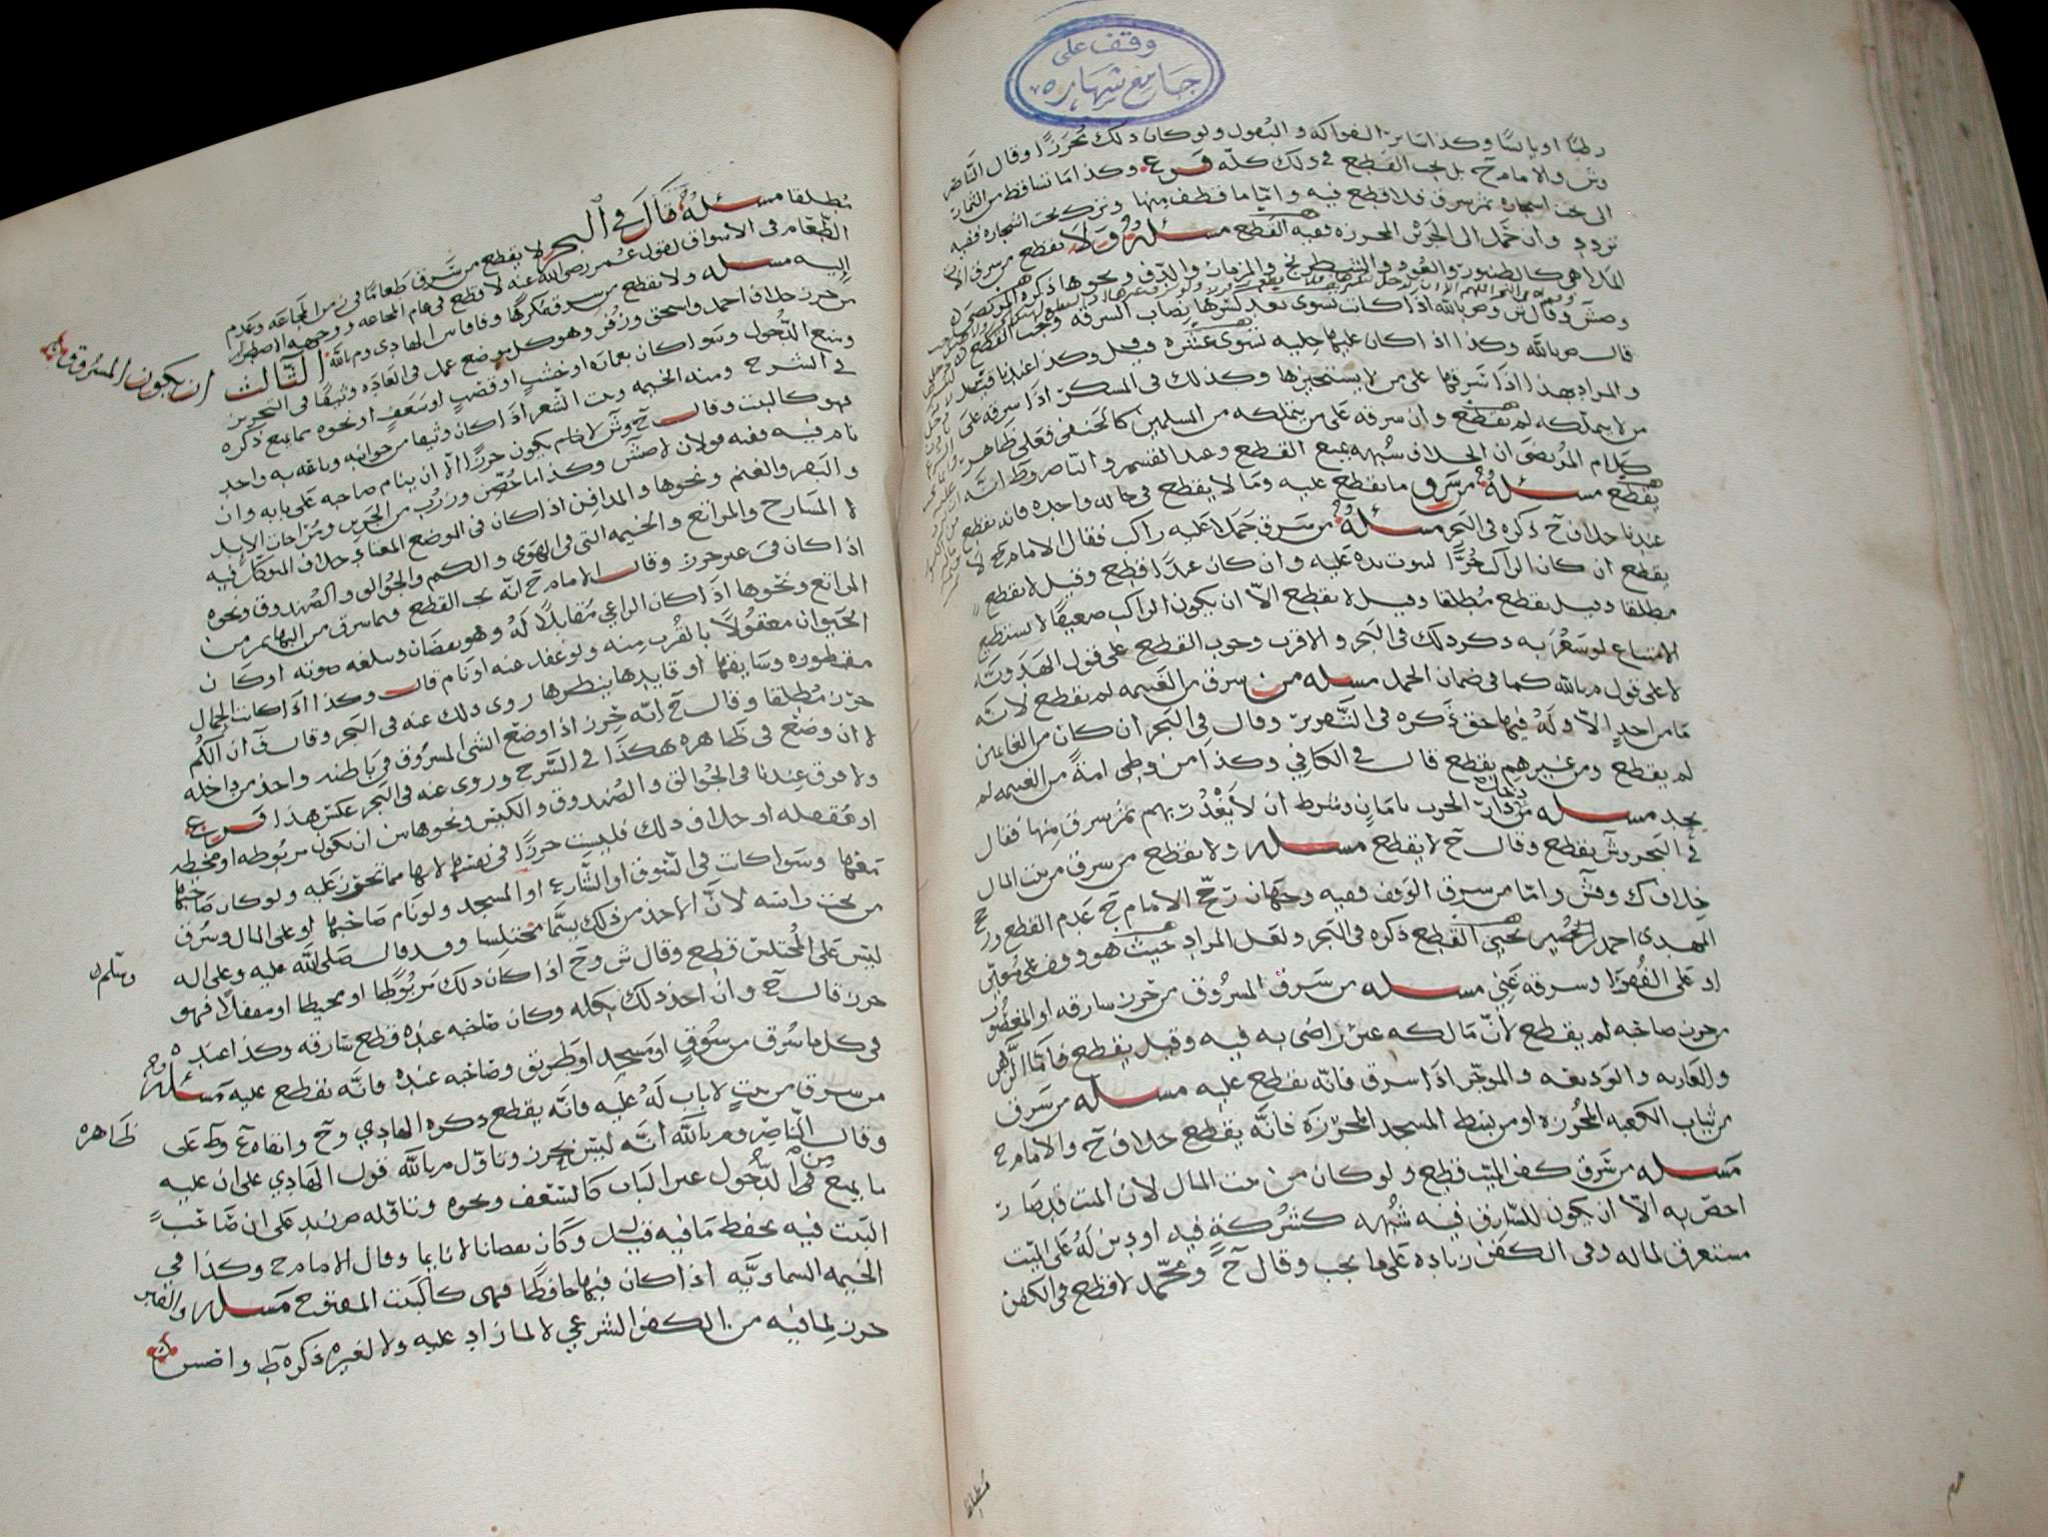 وقف على
جامع شهاره
رطبًا او يابسًا وكذا سائر الفواكه والبقول ولو كان ذلك مُحرَزًا وقال الناصر
وش والامام ح بل يجب القطع في ذلك كله فرع وكذا ما تساقط من الثمار
الى تحت اشجاره ثم سرق فلا قطع فيه واما ما قطف منها وترك تحت اشجاره ففيه
تردد وان حمل الى الجرن المحرزه ففيه القطع مسئله ولا يقطع من سرق الات
الملاهي كالطنبور والعود والشطرنج والمزمار والدف ونحوها ذكره المرتضى
وقال ش وم بالله اذا كانت تسوى بعد كسرها نصاب السرقه وجب القطع
قال م بالله وكذا اذا كان عليها حليه تسوى عشره وكذا عندنا
والمراد بهذا اذا سرقها على من لا يستجيزها وكذلك في المسكر اذا سرقه على
من لا يتملكه لم يقطع وان سرقه على من يتملكه من المسلمين كالحنفي فعلى ظاهر
كلام المرتضى ان الخلاف شبهه يمنع القطع وعند القسم والناصر وط انه
يقطع مسئله من سرق ما يقطع عليه وما لا يقطع في حاله واحده فانه يقطع
عندنا خلاف ح ذكره في البحر مسئله من سرق جملا عليه راكب فقال الامام ح لا
يقطع ان كان الراكب حُرًّا لثبوت يده عليه وان كان عبدًا قطع وقيل لا يقطع
مطلقا وقيل يقطع مُطلقا وقيل لا يقطع الا ان يكون الراكب ضعيفًا لا يستطيع
الامتناع لو شعر به ذكر ذلك في البحر والاقرب وجوب القطع على قول الهدويه
لا على قول م بالله كما في ضمان الحمل مسله من سرق من الغنيمه لم يقطع لانه
ما من احدٍ الا وله فيها حق ذكره في التحرير وقال في البحر ان كان من الغانمين
لم يقطع ومن غيرهم يقطع قال في الكافي وكذا من وطي امةً من الغنيمه لم
يحد مسله من دخل دار الحرب بامانٍ وشرط ان لا يغدر بهم ثم سرق منها فقال
في البحر وش يقطع وقال ح لا يقطع مسله ولا يقطع من سرق من بيت المال
خلاف ك وقش واما من سرق الوقف ففيه وجهان رجح الامام ح عدم القطع ورجح
المهدي احمد بن يحيى القطع ذكره في البحر ولعل المراد حيث هو وقف على معين
او على الفقرا وسرقه غني مسله من سرق المسروق من حرز سارقه او المغصوب
من حرز غاصبه لم يقطع لان مالكه غير راضي به فيه وقيل يقطع فاما الرهن
والعاريه والوديعه والموجر اذا سرق فانه يقطع عليه مسله من سرق
من ثياب الكعبه المحرزه او من بسط المسجد المحرزه فانه يقطع خلاف ح والامام ح
مسله من سرق كفن الميت قطع ولو كان من بيت المال لان الميت قد صار
اخص به الا ان يكون للسارق فيه شبهه كشركةٍ فيه او دين له على الميت
مستغرق لماله وفي الكفن زياده على ما يجب وقال ح ومحمد لا قطع في الكفن
مُطلقا
مُطلقا مسئله قال في البحر لا يقطع من سرق طعامًا في زمن المجاعه وعدم
الطعام في الاسواق لقول عمر رضي الله عنه لا قطع في عام المجاعه ووجهه الاضطرار
اليه مسله ولا يقطع من سرق مكرهًا وفاقا بين الهادي وم بالله الثالث ان يكون المسروق
من حرز خلاف احمد واسحق وزفر وهو كل موضع عمل في العاده وثيقًا في التحريز
ومنع الدخول وسوا كان بعماره او خشبٍ او قصبٍ او سعفٍ او نحوه مما يمنع ذكره
في الشرح ومنه الخيمه وبيت الشعر اذا كان وثيقا من جوانبه وبابه به واحد
فهو كالبيت وقال ح وش لا يكون حرزًا الا ان ينام صاحبه على بابه وان
نام فيه ففيه قولان لاصش وكذا ما حُصّن وزُرّب من الجرين ومراحات الابل
والبقر والغنم ونحوها والمدافن اذا كان في الموضع المعتاد خلاف المتوكل فيه
لا المسارح والمراتع والخيمه التي في الهوى والكم والجوالق والصندوق ونحوه
اذا كان في غير حرز وقال الامام ح انه يجب القطع فيما سرق من البهايم من
المراتع ونحوها اذا كان الراعي مُقابلًا له وهو يقضان وبلغه صوته او كان
الحيوان معقولًا بالقرب منه ولو غفل عنه او نام قال وكذا اذا كانت الجمال
مقطوره وسايقها او قايدها ينظرها روى ذلك عنه في البحر وقال ق ان الكم
حرز مُطلقا وقال ح انه حرز اذا وضع الشي المسروق في باطنه واخذ من داخله
لا ان وضع في ظاهره هكذا في الشرح وروى عنه في البحر عكس هذا فرع
ولا فرق عندنا في الجوالق والصندوق والكيس ونحوها بين ان يكون مربوطه او مخيطه
او مقفله او خلاف ذلك فليست حرزًا في نفسها لانها مما تحرز عليه ولو كان صاحبها
معها وسوا كانت في السوق او الشارع او المسجد ولو نام صاحبها او على المال وسرق
من تحت راسه لان الاخذ من ذلك يسمّا مختلسا وقد قال صلى الله عليه وعلى اله وسلم
ليس على المختلس قطع وقال ش وح اذا كان ذلك مربوطًا او مخيطا او مقفلًا فهو
حرز قال ح وان اخذ ذلك بكله وكان صاحبه عنده قطع سارقه وكذا عنده
في كل ما سُرق من سوقٍ او مسجد او طريق وصاحبه عنده فانه يقطع عليه مسئله
من سرق من بيتٍ لا باب له عليه فانه يقطع ذكره الهادي وح وابقاه ع وط على ظاهره
وقال الناصر وم بالله انه ليس بحرز وتاول م بالله قول الهادي على ان عليه
ما يمنع من الدخول غير الباب كالسعف ونحوه وتاوله ص بالله على ان صاحب
البيت فيه يحفظ ما فيه قيل وكان يقضانا لا نايما وقال الامام ح وكذا في
الخيمه السماويه اذا كان فيها حافظًا فهي كالبيت المفتوح مسله والقبر
حرز لما فيه من الكفن الشرعي لا لما زاد عليه ولا لغيره ذكره ط واصش